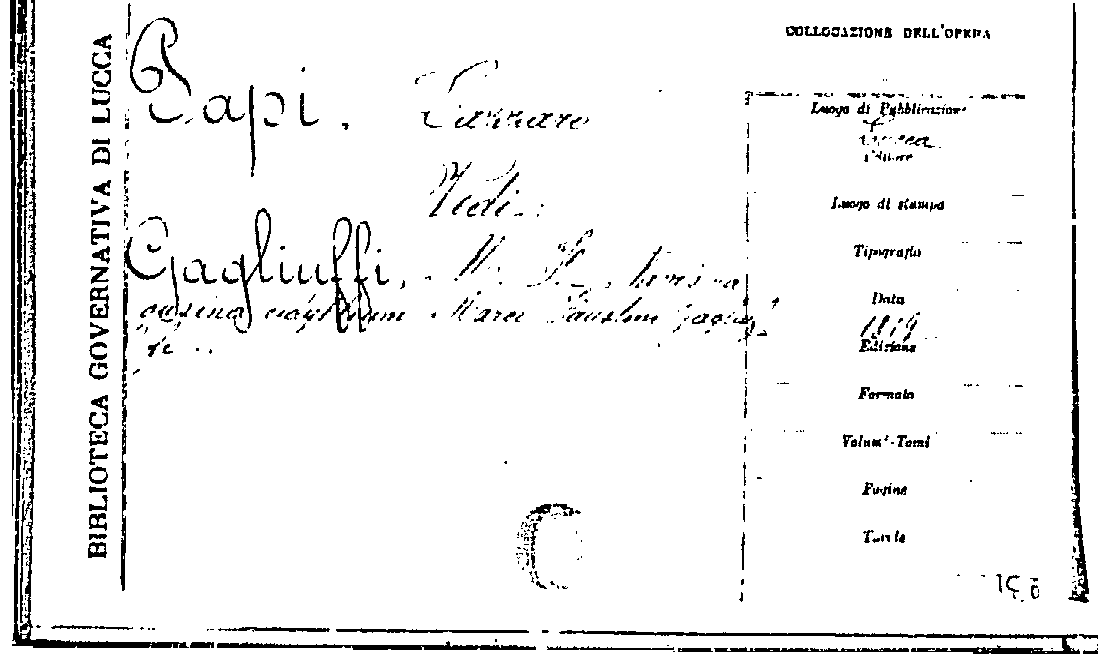 BIBLIOTECA GOVERNATIVA DI LUCCA
Papi. Lazzaro
Vedi:
Gagliuffi, M. F.
Marci Faustini
COLLOCAZIONE DELL'OPERA
Luogo di Pubblicazione
Lucca
Editore
Luogo di stampa
Tipografia
Data
1819
Edizione
Formato
Volumi-Tomi
Pagine
Tavole